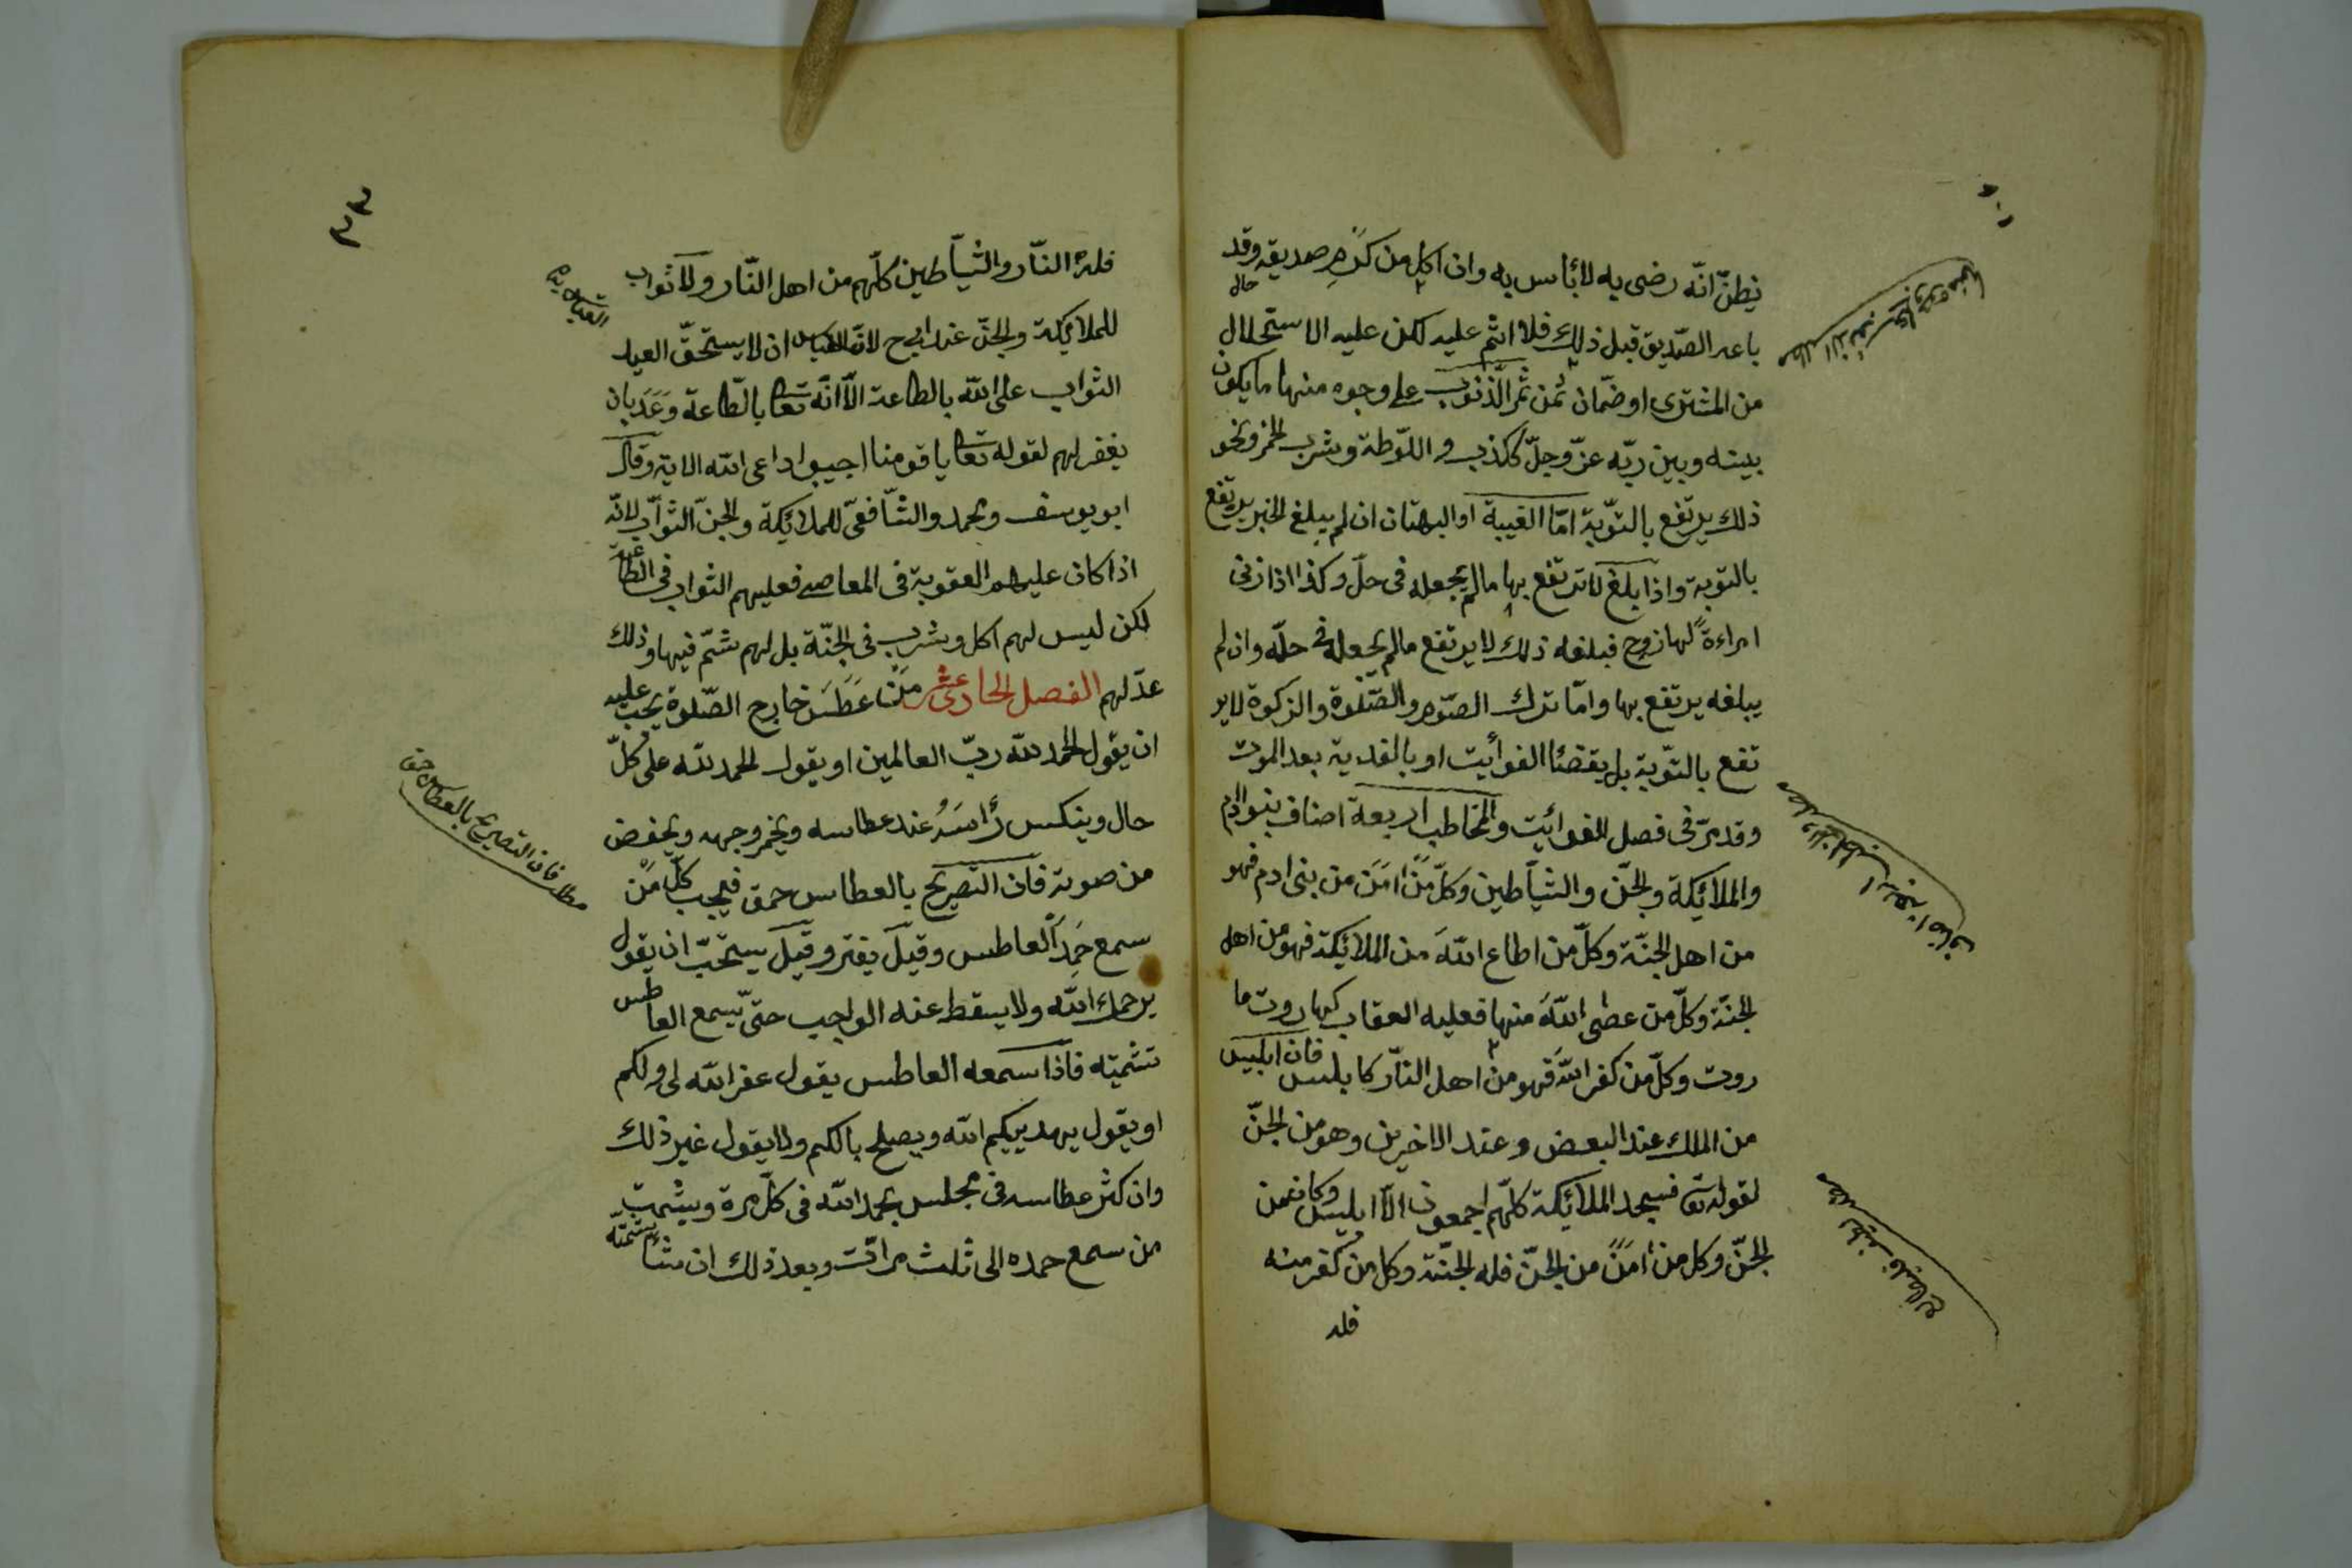 يظنّ انّه رضى به لا بأس به وان اكل من كرم صديقه وقد
باعه الصّديق قبل ذلك فلا اثم عليه لكن عليه الاستحلال
من المشترى او ضمان ثمن ثمر الذنوب على وجوه منها ما يكون
بينه وبين ربّه عزّ وجلّ ككذب و اللّوطة وشرب الخمر ونحو
ذلك يرتفع بالتّوبة امّا الغيبة او البهتان ان لم يبلغ الخبر يرتفع
بالتوبة واذا بلغ لا ترتفع بها مالم يجعله فى حلّ وكذا اذا زنى
امراءة لها زوج فبلغه ذلك لا يرتفع مالم يجعله فى حلّه وان لم
يبلغه يرتفع بها وامّا ترك الصّوم والصّلوة والزكوة لا ير
تفع بالتّوبة بل يقضا الفوائت او بالفدية بعد الموت
وقد مرّ فى فصل الفوائت والمخاطب اربعة اصناف بنوا ادم
والملائكة والجنّ والشّياطين وكلّ من امن من بنى ادم فهو
من اهل الجنّة وكلّ من اطاع الله من الملائكة فهو من اهل
الجنّة وكلّ من عصى الله منها فعليه العقاب كهاروت ما
روت وكلّ من كفر الله فهو من اهل النّار كابليس فان ابليس
من الملك عند البعض وعند الاخرين وهو من الجنّ
لقوله تعا فسجد الملائكة كلّهم اجمعون الّا ابليس وكان من
الجنّ وكل من امن من الجنّ فله الجنّة وكل من كفر منه
فله
٣٣
فله النّار والشّياطين كلّهم من اهل النّار ولا ثواب
للملائكة والجنّ عند ابى ح لانّ القياس ان لا يستحقّ العبد
الثواب على الله بالطاعة الّا انّه تعا بالطّاعة وعد بان
يغفر لهم لقوله تعا يا قومنا اجيبوا داعى الله الاية وقال
ابو يوسف ومحمد والشّافعىّ للملائكة والجنّ الثواب لانّه
اذا كان عليهم العقوبة فى المعاصى فعليهم الثواب فى الطّاعة
لكن ليس لهم اكل وشرب فى الجنّة بل لهم شمّ فيها وذلك
عدّ لهم الفصل الحادى عشر من عطس خارج الصّلوة يجب عليه
ان يقول الحمد لله ربّ العالمين او يقول الحمد لله على كلّ
حال وينكس رأسه عند عطاسه ويخمر وجهه ويخفض
من صوته فان التصريح بالعطاس حمق فيجب كلّ من
سمع حمد العاطس وقيل يفتر وقيل يستحبّ ان يقول
يرحمك الله ولا يسقط عنه الواجب حتّى يسمع العاطس
تشميته فاذا سمعه العاطس يقول غفر الله لى ولكم
او يقول يهديكم الله ويصلح بالكم ولا يقول غير ذلك
وان كثر عطاسه فى مجلس يحمد الله فى كلّ مرة ويشمت
من سمع حمده الى ثلث مرات وبعد ذلك ان شاء شمته
مطلب فان التصريح بالعطاس حمق